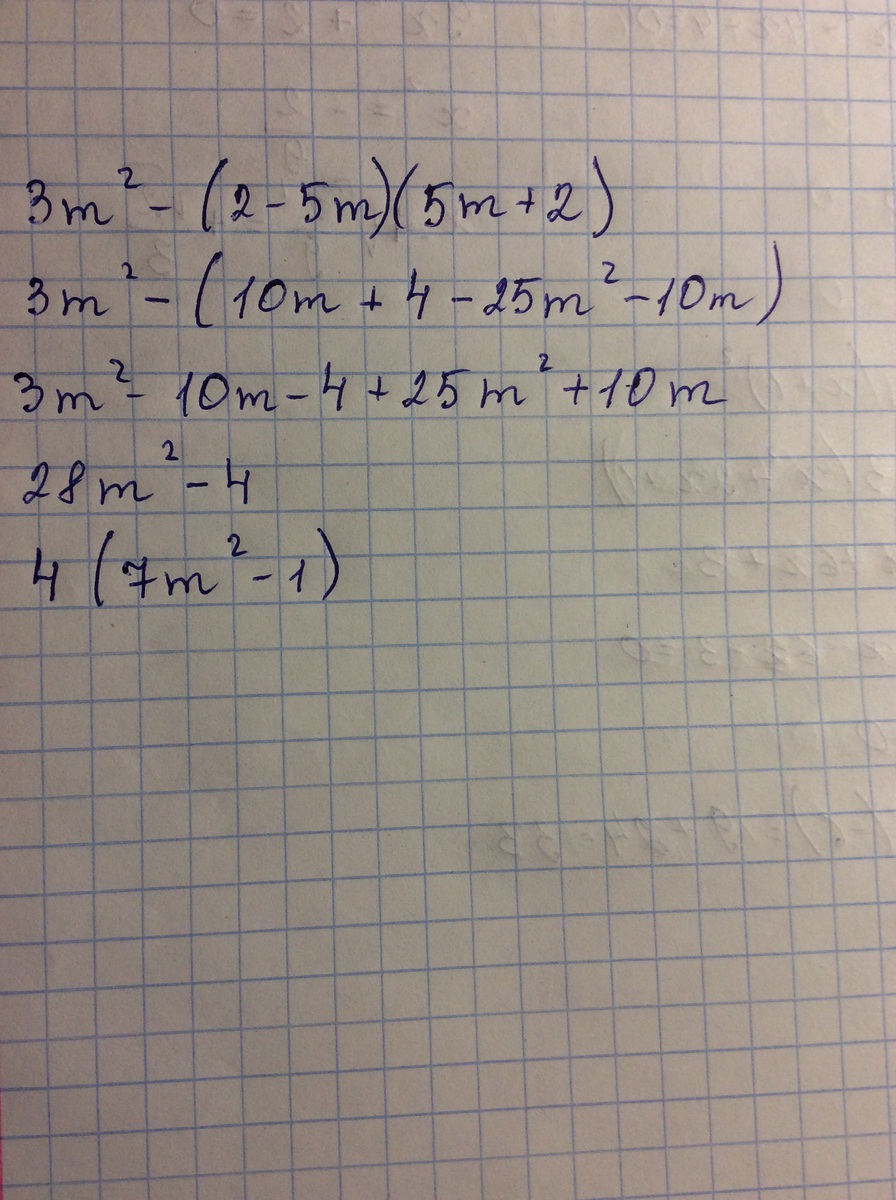 3m² - (2 - 5m)(5m + 2)
3m² - (10m + 4 - 25m² - 10m)
3m² - 10m - 4 + 25m² + 10m
28m² - 4
4 (7m² - 1)